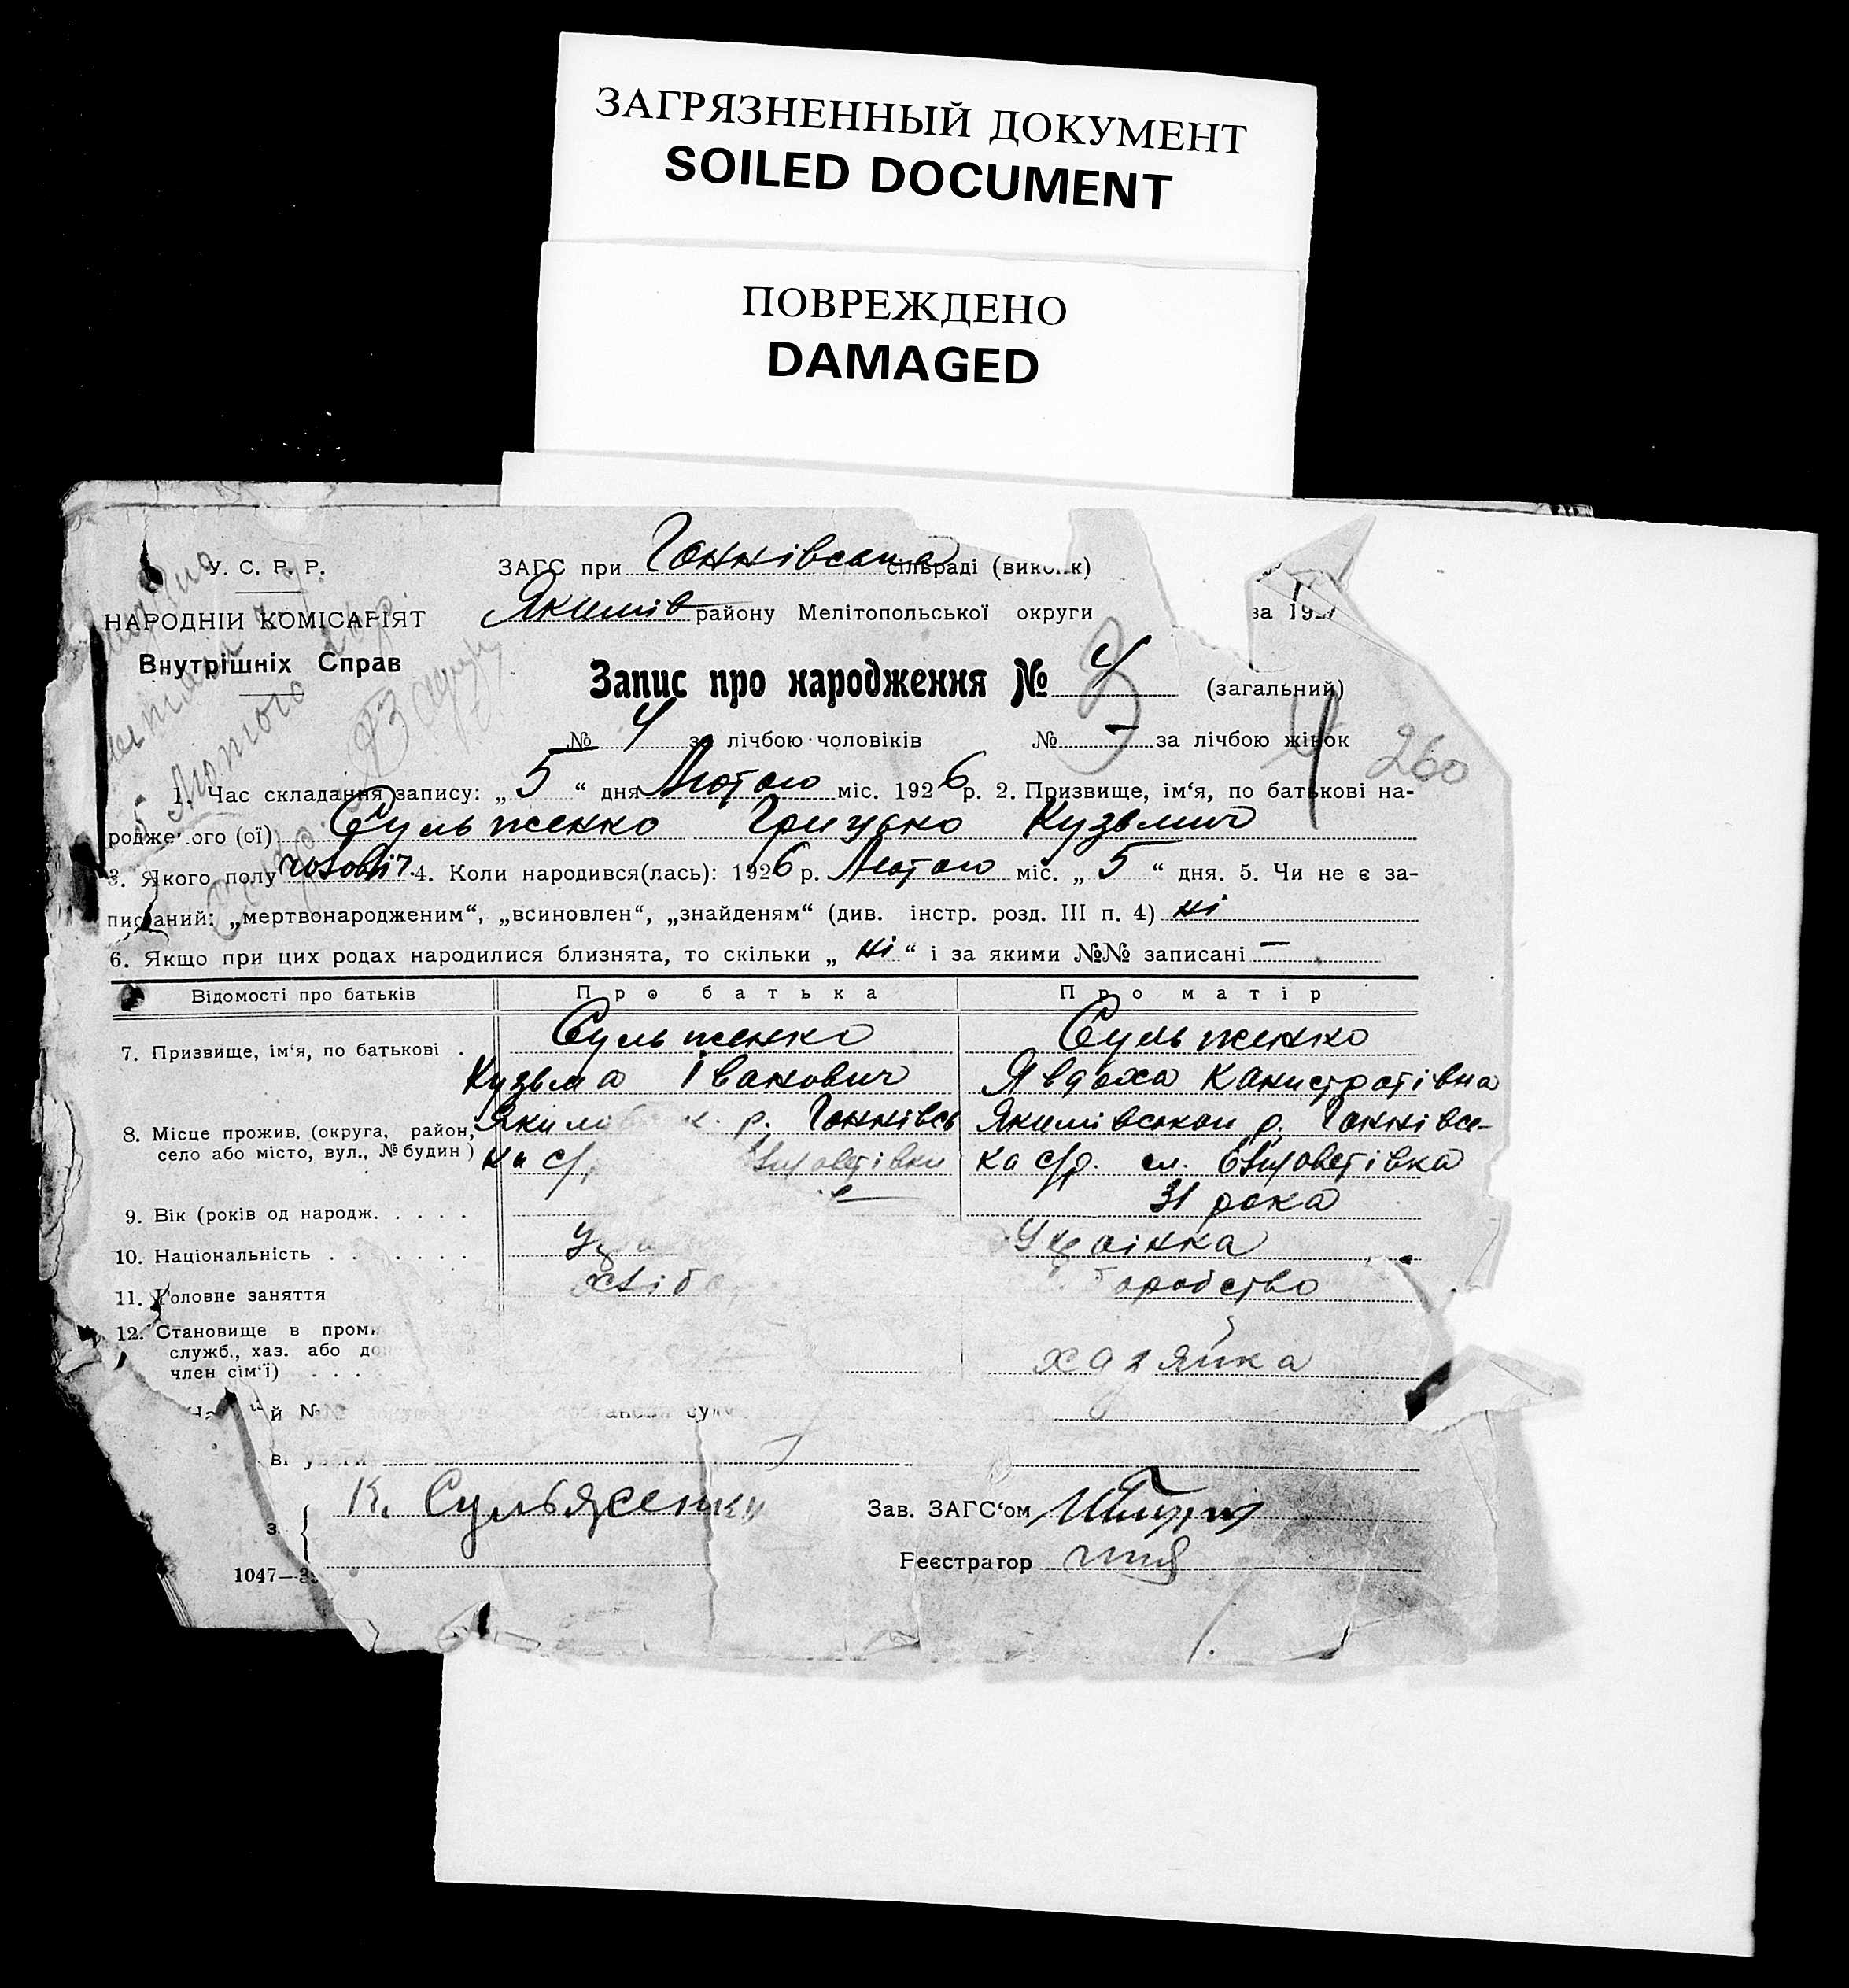 ЗАГРЯЗНЕННЫЙ ДОКУМЕНТ
SOILED DOCUMENT
ПОВРЕЖДЕНО
DAMAGED
У. С. Р. Р.
НАРОДНІЙ КОМІСАРІЯТ
Внутрішніх Справ
ЗАГС при Ганнівська сільраді
Якимів району Мелітопольської округи
за 192
Запис про народження № 4 (загальний)
№ 4 за лічбою чоловіків № — за лічбою жінок
260
1. Час складання запису: „ 5 “ дня Лютого міс. 1926 р. 2. Призвище, ім‘я, по батькові на-
родженого (ої) Сульженко Грицько Кузьмич
3. Якого полу чолові. 4. Коли народився(лась): 1926 р. Лютого міс. „ 5 “ дня. 5. Чи не є за-
писаний: „мертвонародженим“, „всиновлен“, „знайденям“ (див. інстр. розд. III п. 4) ні
6. Якщо при цих родах народилися близнята, то скільки „ ні “ і за якими №№ записані —
Відомості про батьків Про батька Про матір
7. Призвище, ім‘я, по батькові . Сульженко Сульженко
Кузьма Іванович Явдоха Канистратівна
8. Місце прожив. (округа, район, р. Ганнівсь Якимівськои р. Ганнівсь-
село або місто, вул., № будин ) ка с/р ка с/р.
9. Вік (років од народж. . . . . 31 рока
10. Національність . . . . . . . Украінка
11. Головне заняття хліб
12. Становище в
служб., хаз. або
член сім‘ї) . . . хазяйка
К. Сульженко Зав. ЗАГС‘ом
Реєстратор
1047—3